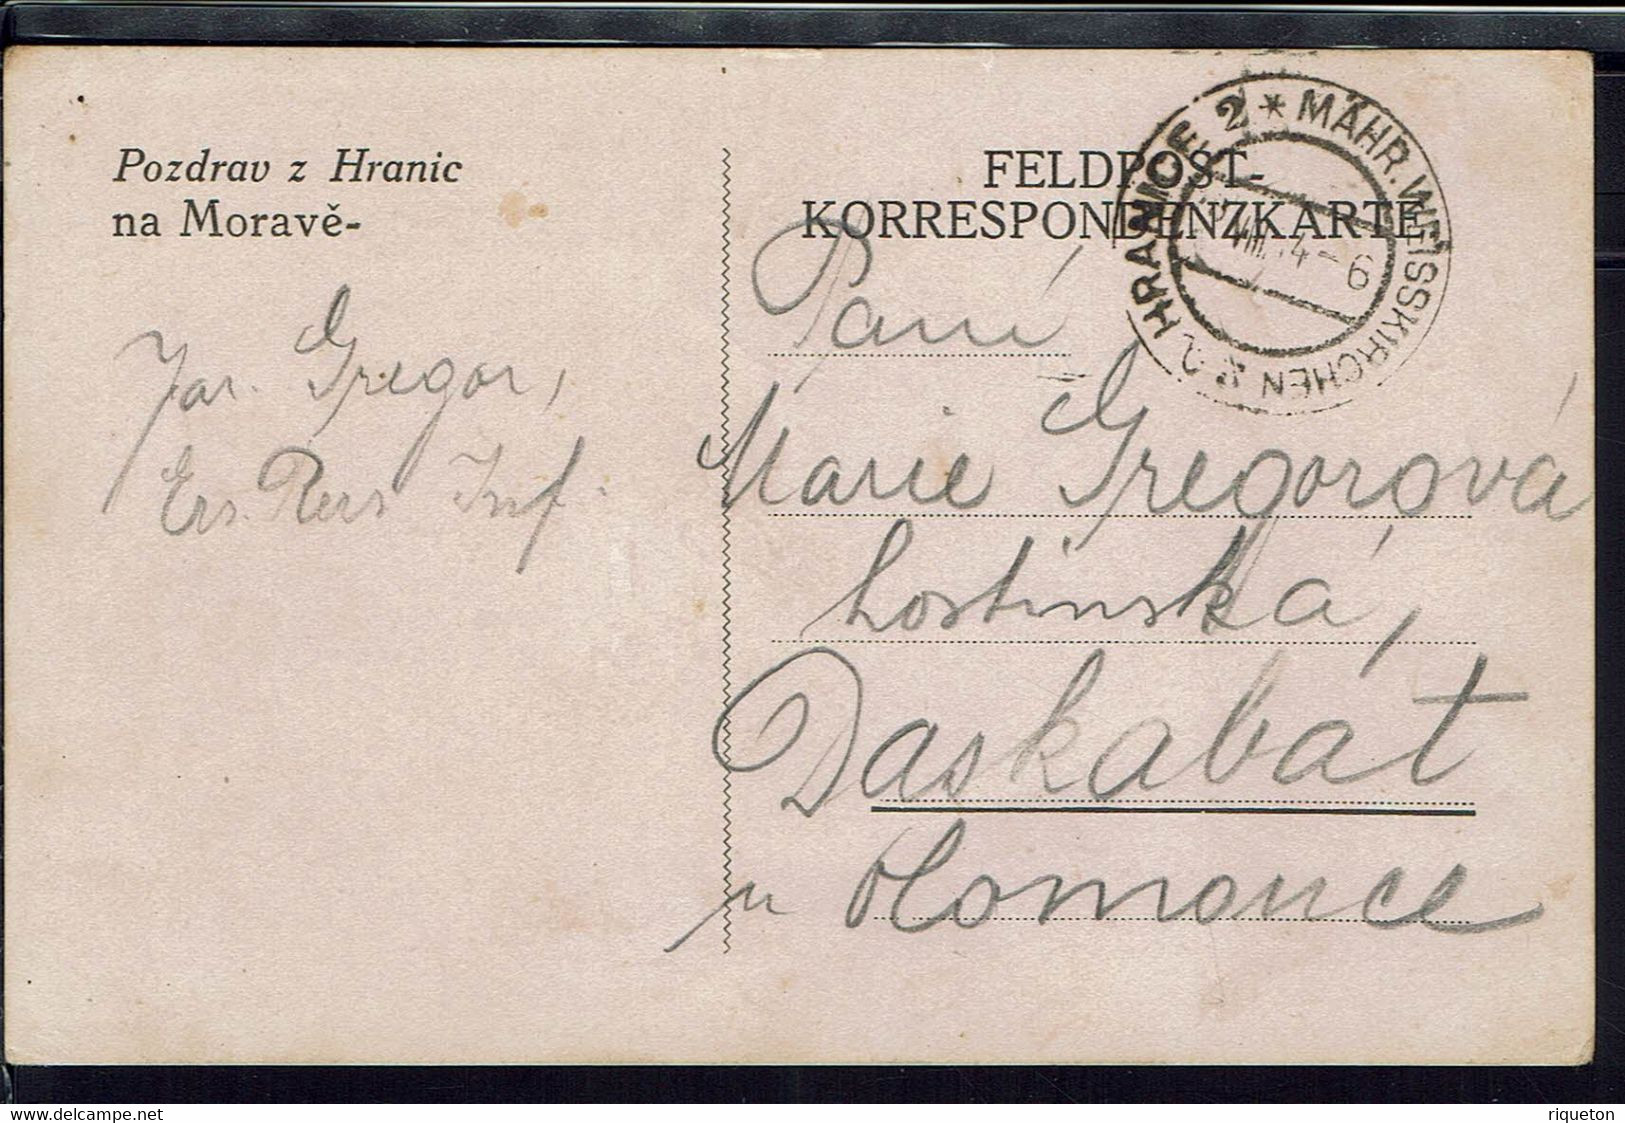 Pozdrav z Hranic
na Moravě-
Jar. Gregor,
Ers. Res Inf.
FELDPOST-
KORRESPONDENZKARTE
HRANICE 2 * MÄHR. WEISSKIRCHEN * 2
VIII. 14 - 6
Paní
Marie Gregorová
hostinská,
Daskabát
u Olomouce
delcampe.net
riqueton